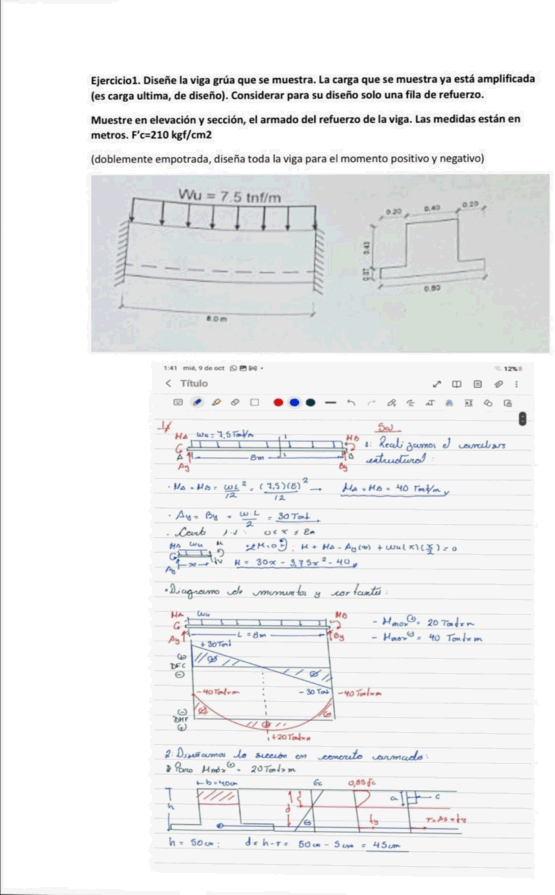 Ejercicio1. Diseñe la viga grúa que se muestra. La carga que se muestra ya está amplificada
(es carga ultima, de diseño). Considerar para su diseño solo una fila de refuerzo.
Muestre en elevación y sección, el armado del refuerzo de la viga. Las medidas están en
metros. F'c=210 kgf/cm2
(doblemente empotrada, diseña toda la viga para el momento positivo y negativo)
Wu = 7.5 tnf/m
0.20 0.40 0.20
0.43
0.07
0.80
8.0 m
1:41 mié, 9 de oct
12%
< Título
1/ Sol
MA Wu = 7,5 Ton/m MB
1: Realizamos el
estructural:
A 8m B
Ay By
· MA = MB = wL²/12 = (7,5)(8)²/12 → MA = MB = 40 Ton/m
· Ay = By = wL/2 = 30 Ton
· 1-1: 0 ≤ x ≤ 8m
MA Wu M
ΣM=0: M + MA - Ay(x) + Wu(x)(x/2) = 0
Ay x V
M = 30x - 3,75x² - 40
• Diagrama de momentos y cortantes:
MA Wu MB
Ay L = 8m By
- Mmax(+) = 20 Tonxm
- Mmax(-) = 40 Tonxm
+30Ton
(+)
DFC
(-)
-30 Ton
-40Tonxm -40Tonxm
(-)
DMF
(+)
+20Tonxm
2: Diseñamos la sección en concreto armado:
Para Mmáx(+) = 20Tonxm
b=40cm εc 0,85f'c
h d a c
fy T=As*fy
h = 50cm; d = h-r = 50cm - 5cm = 45cm